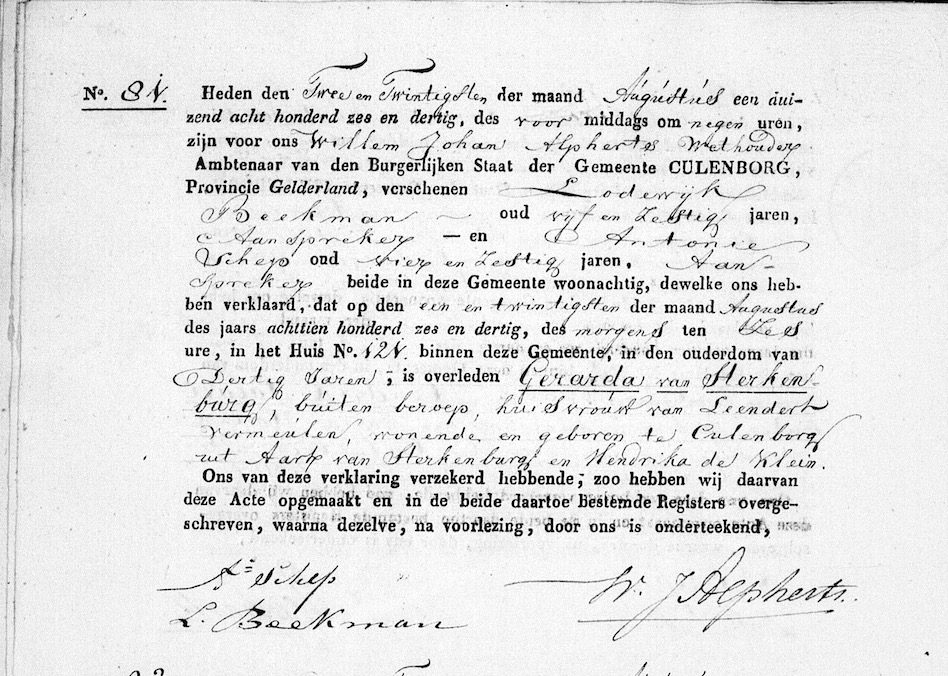 No. 81. Heden den Twee en Twintigsten der maand Augustus een dui-
zend acht honderd zes en dertig, des voor middags om negen uren,
zijn voor ons Willem Johan Alpherts Wethouder
Ambtenaar van den Burgerlijken Staat der Gemeente CULENBORG,
Provincie Gelderland, verschenen Lodewijk
Beekman — oud vijf en Zestig jaren,
Aanspreker — en Antonie
Schep oud vier en Zestig jaren, Aan-
spreker beide in deze Gemeente woonachtig, dewelke ons heb-
ben verklaard, dat op den een en twintigsten der maand Augustus
des jaars achttien honderd zes en dertig, des morgens ten Zes
ure, in het Huis No. 121. binnen deze Gemeente, in den ouderdom van
Dertig Jaren, is overleden Gerarda van Sterken-
burg, buiten beroep, huisvrouw van Leendert
Vermeulen, wonende en geboren te Culenborg
uit Aart van Sterkenburg en Hendrika de Klein.
Ons van deze verklaring verzekerd hebbende, zoo hebben wij daarvan
deze Acte opgemaakt en in de beide daartoe bestemde Registers overge-
schreven, waarna dezelve, na voorlezing, door ons is onderteekend,
A= Schep
W. J Alpherts.
L. Beekman